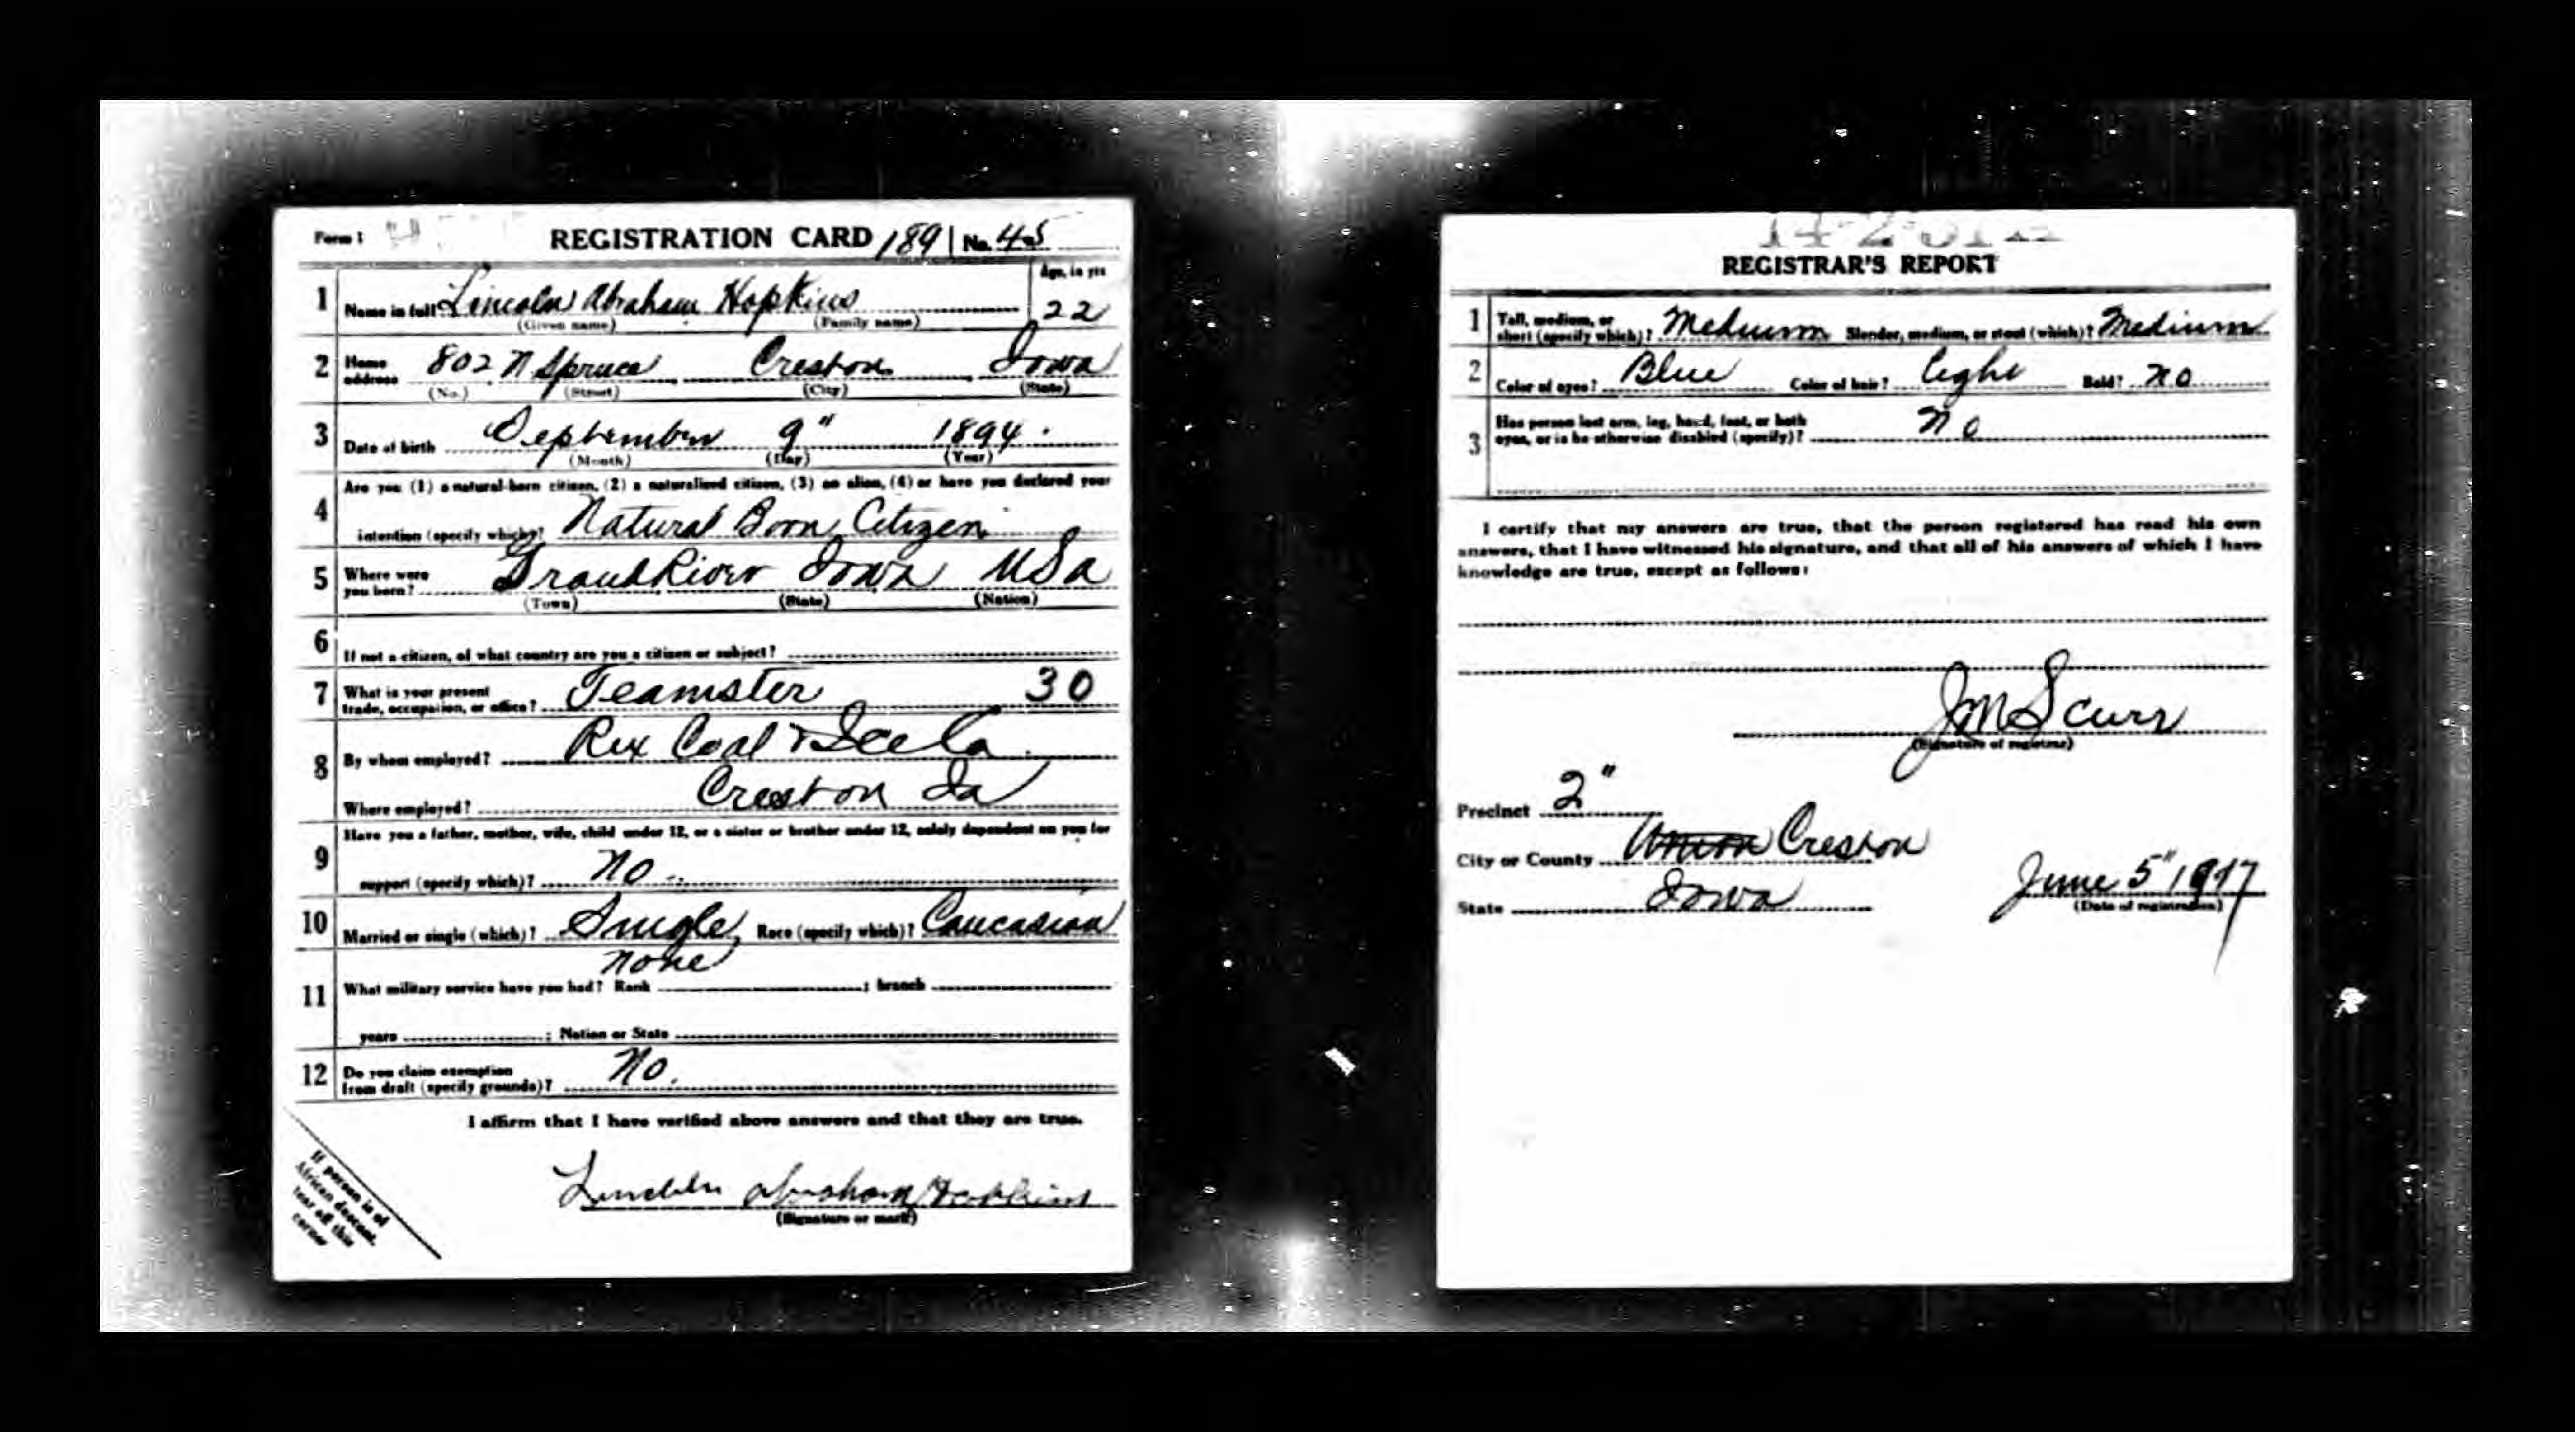 Form 1
REGISTRATION CARD 1891 No. 45
1 Name in full Lincoln Abraham Hopkins
(Given name) (Family name)
Age, in yrs
22
2 Home address 802 N Spruce Creston Iowa
(No.) (Street) (City) (State)
3 Date of birth September 9" 1894.
(Month) (Day) (Year)
4 Are you (1) a natural-born citizen, (2) a naturalized citizen, (3) an alien, (4) or have you declared your
intention (specify which)? Natural Born Citizen
5 Where were you born? Grand River Iowa USA
(Town) (State) (Nation)
6 If not a citizen, of what country are you a citizen or subject?
7 What is your present
trade, occupation, or office? Teamster 30
8 By whom employed? Rex Coal & Ice Co
Where employed? Creston Ia
9 Have you a father, mother, wife, child under 12, or a sister or brother under 12, solely dependent on you for
support (specify which)? No
10 Married or single (which)? Single Race (specify which)? Caucasian
None
11 What military service have you had? Rank ; branch
years ; Nation or State
12 Do you claim exemption
from draft (specify grounds)? No.
I affirm that I have verified above answers and that they are true.
Lincoln Abraham Hopkins
(Signature or mark)
If person is of
African descent,
tear off this
corner
REGISTRAR'S REPORT
1 Tall, medium, or
short (specify which)? Medium Slender, medium, or stout (which)? Medium
2 Color of eyes? Blue Color of hair? Light Bald? No
3 Has person lost arm, leg, hand, foot, or both
eyes, or is he otherwise disabled (specify)? No
I certify that my answers are true, that the person registered has read his own
answers, that I have witnessed his signature, and that all of his answers of which I have
knowledge are true, except as follows:
JM Scurr
(Signature of registrar)
Precinct 2"
City or County Union Creston
State Iowa June 5" 1917
(Date of registration)